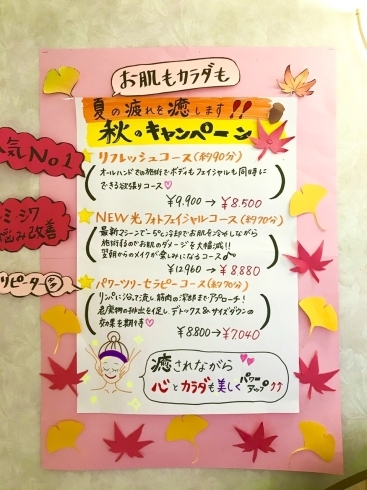 お肌もカラダも
夏の疲れを癒します!!
秋のキャンペーン
気No1
リフレッシュコース(約90分)
オールハンドでの施術でボディもフェイシャルも同時に
できる欲張りコース♡
¥9.900→¥8.500
ミ・シワ
悩み改善
NEW光フォトフェイシャルコース(約70分)
最新マシーンで-5℃冷却でお肌を冷やしながら
施術するのでお肌のダメージを大幅減!!
翌朝からのメイクが楽しみになるコース
¥12960→¥8880
リピーター
パワーツリーセラピーコース(約70分)
リンパに沿って流し筋肉の深部までアプローチ!
老廃物の排出を促し、デトックス&サイズダウンの
効果を期待♡
¥8.800→¥7.040
癒されながら
心とカラダも美しくパワーアップ⤴⤴